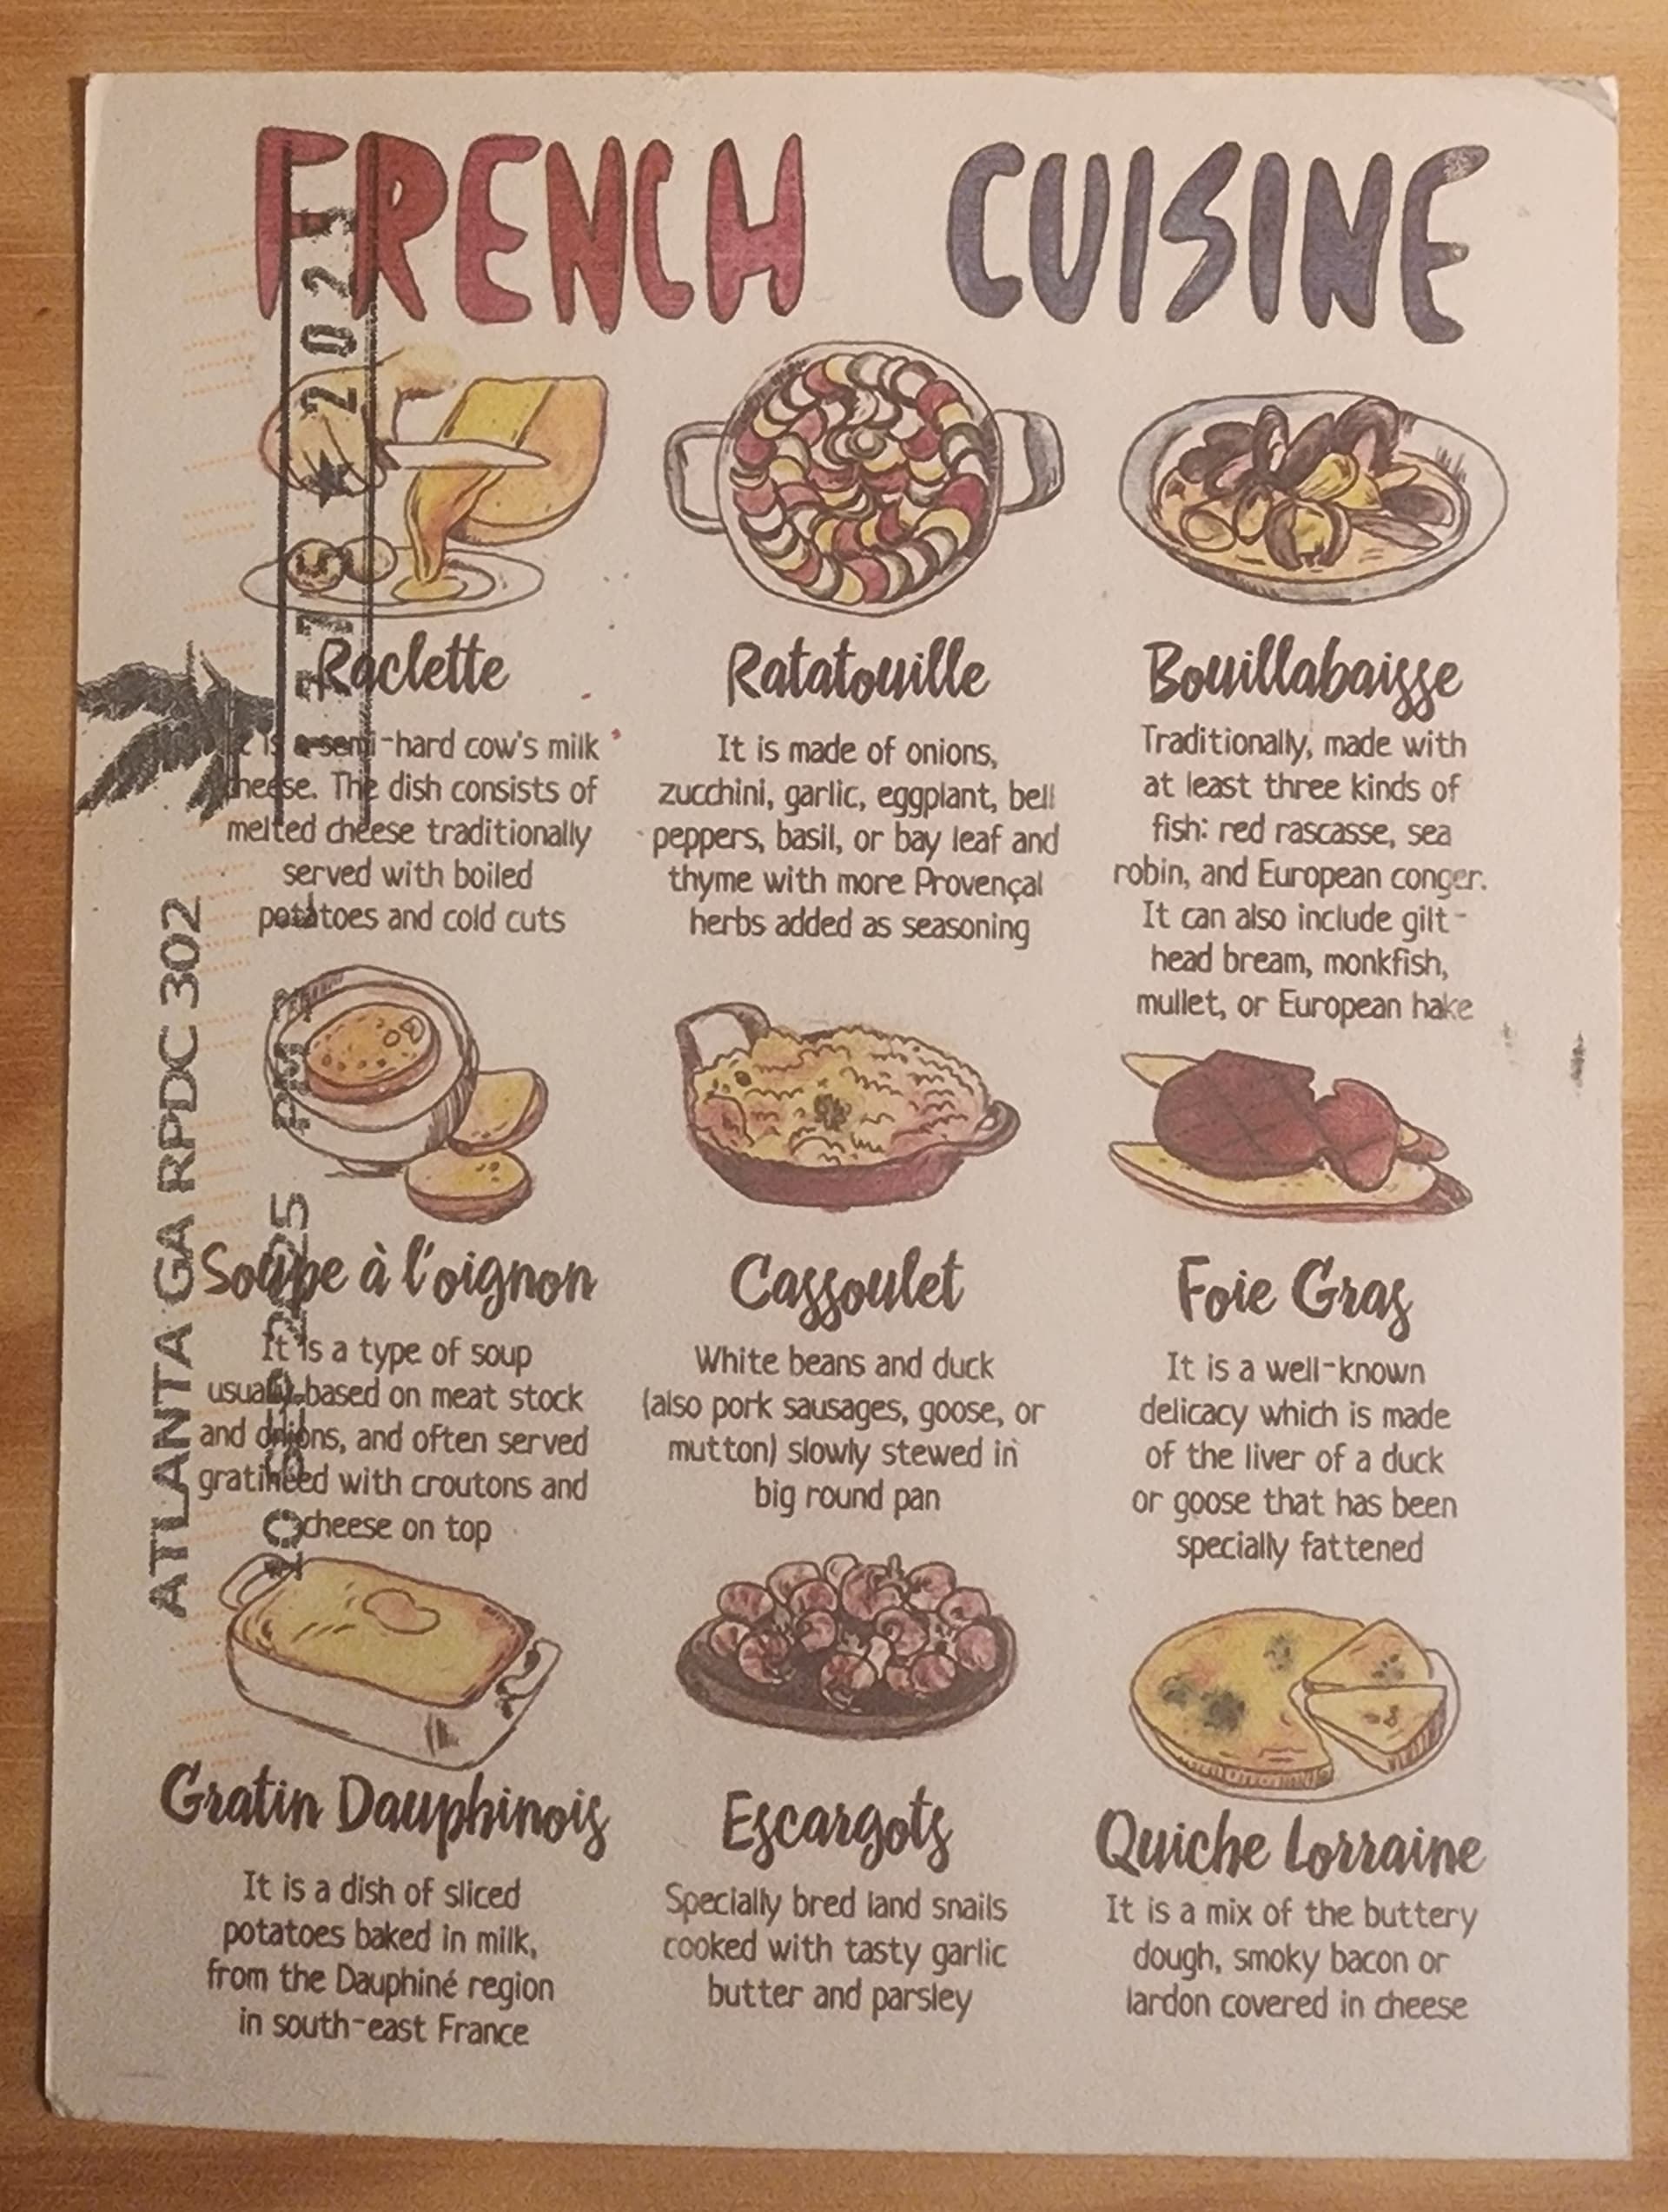 FRENCH CUISINE
Raclette
It is a semi-hard cow's milk
cheese. The dish consists of
melted cheese traditionally
served with boiled
potatoes and cold cuts
Ratatouille
It is made of onions,
zucchini, garlic, eggplant, bell
peppers, basil, or bay leaf and
thyme with more Provençal
herbs added as seasoning
Bouillabaisse
Traditionally, made with
at least three kinds of
fish: red rascasse, sea
robin, and European conger.
It can also include gilt-
head bream, monkfish,
mullet, or European hake
Soupe à l'oignon
It is a type of soup
usually based on meat stock
and onions, and often served
gratinéed with croutons and
cheese on top
Cassoulet
White beans and duck
(also pork sausages, goose, or
mutton) slowly stewed in
big round pan
Foie Gras
It is a well-known
delicacy which is made
of the liver of a duck
or goose that has been
specially fattened
Gratin Dauphinois
It is a dish of sliced
potatoes baked in milk,
from the Dauphiné region
in south-east France
Escargots
Specially bred land snails
cooked with tasty garlic
butter and parsley
Quiche Lorraine
It is a mix of the buttery
dough, smoky bacon or
lardon covered in cheese
ATLANTA GA RPDC 302
10 SEP 2025 PM